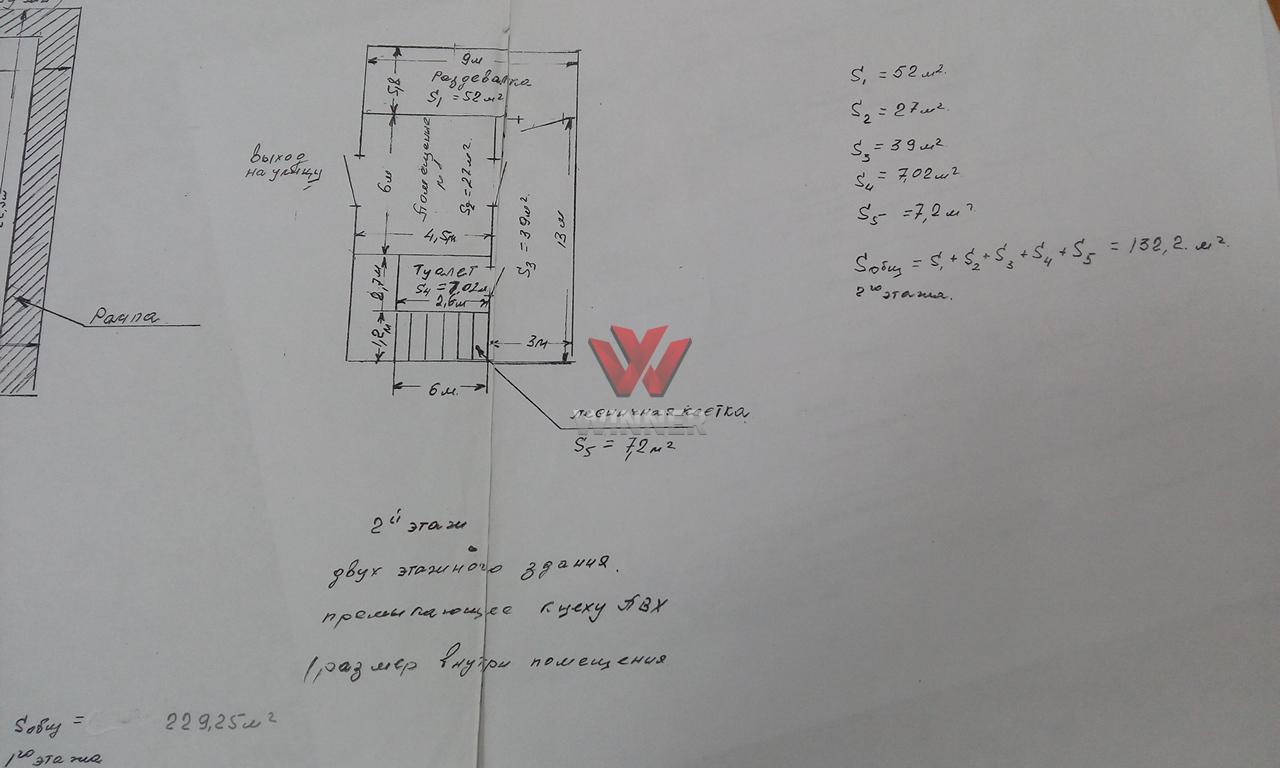 9м
Раздевалка
S₁ = 52 м²
5,8
выход
на улицу
6м
Помещение
S₂ = 27 м².
4,5м
S₃ = 39 м².
13 м
Туалет
S₄ = 7,02м²
2,6м
2,7м
1,2м
3м
6 м.
Рампа
лестничная клетка
WINNER
S₅ = 7,2 м²
S₁ = 52 м².
S₂ = 27 м².
S₃ = 39 м²
S₄ = 7,02 м²
S₅ = 7,2 м².
Sобщ = S₁ + S₂ + S₃ + S₄ + S₅ = 132,2. м².
2го этажа.
2й этаж
двух этажного здания.
премыкающее к цеху ПВХ
размер внутри помещения
Sобщ = 229,25 м²
1го этажа